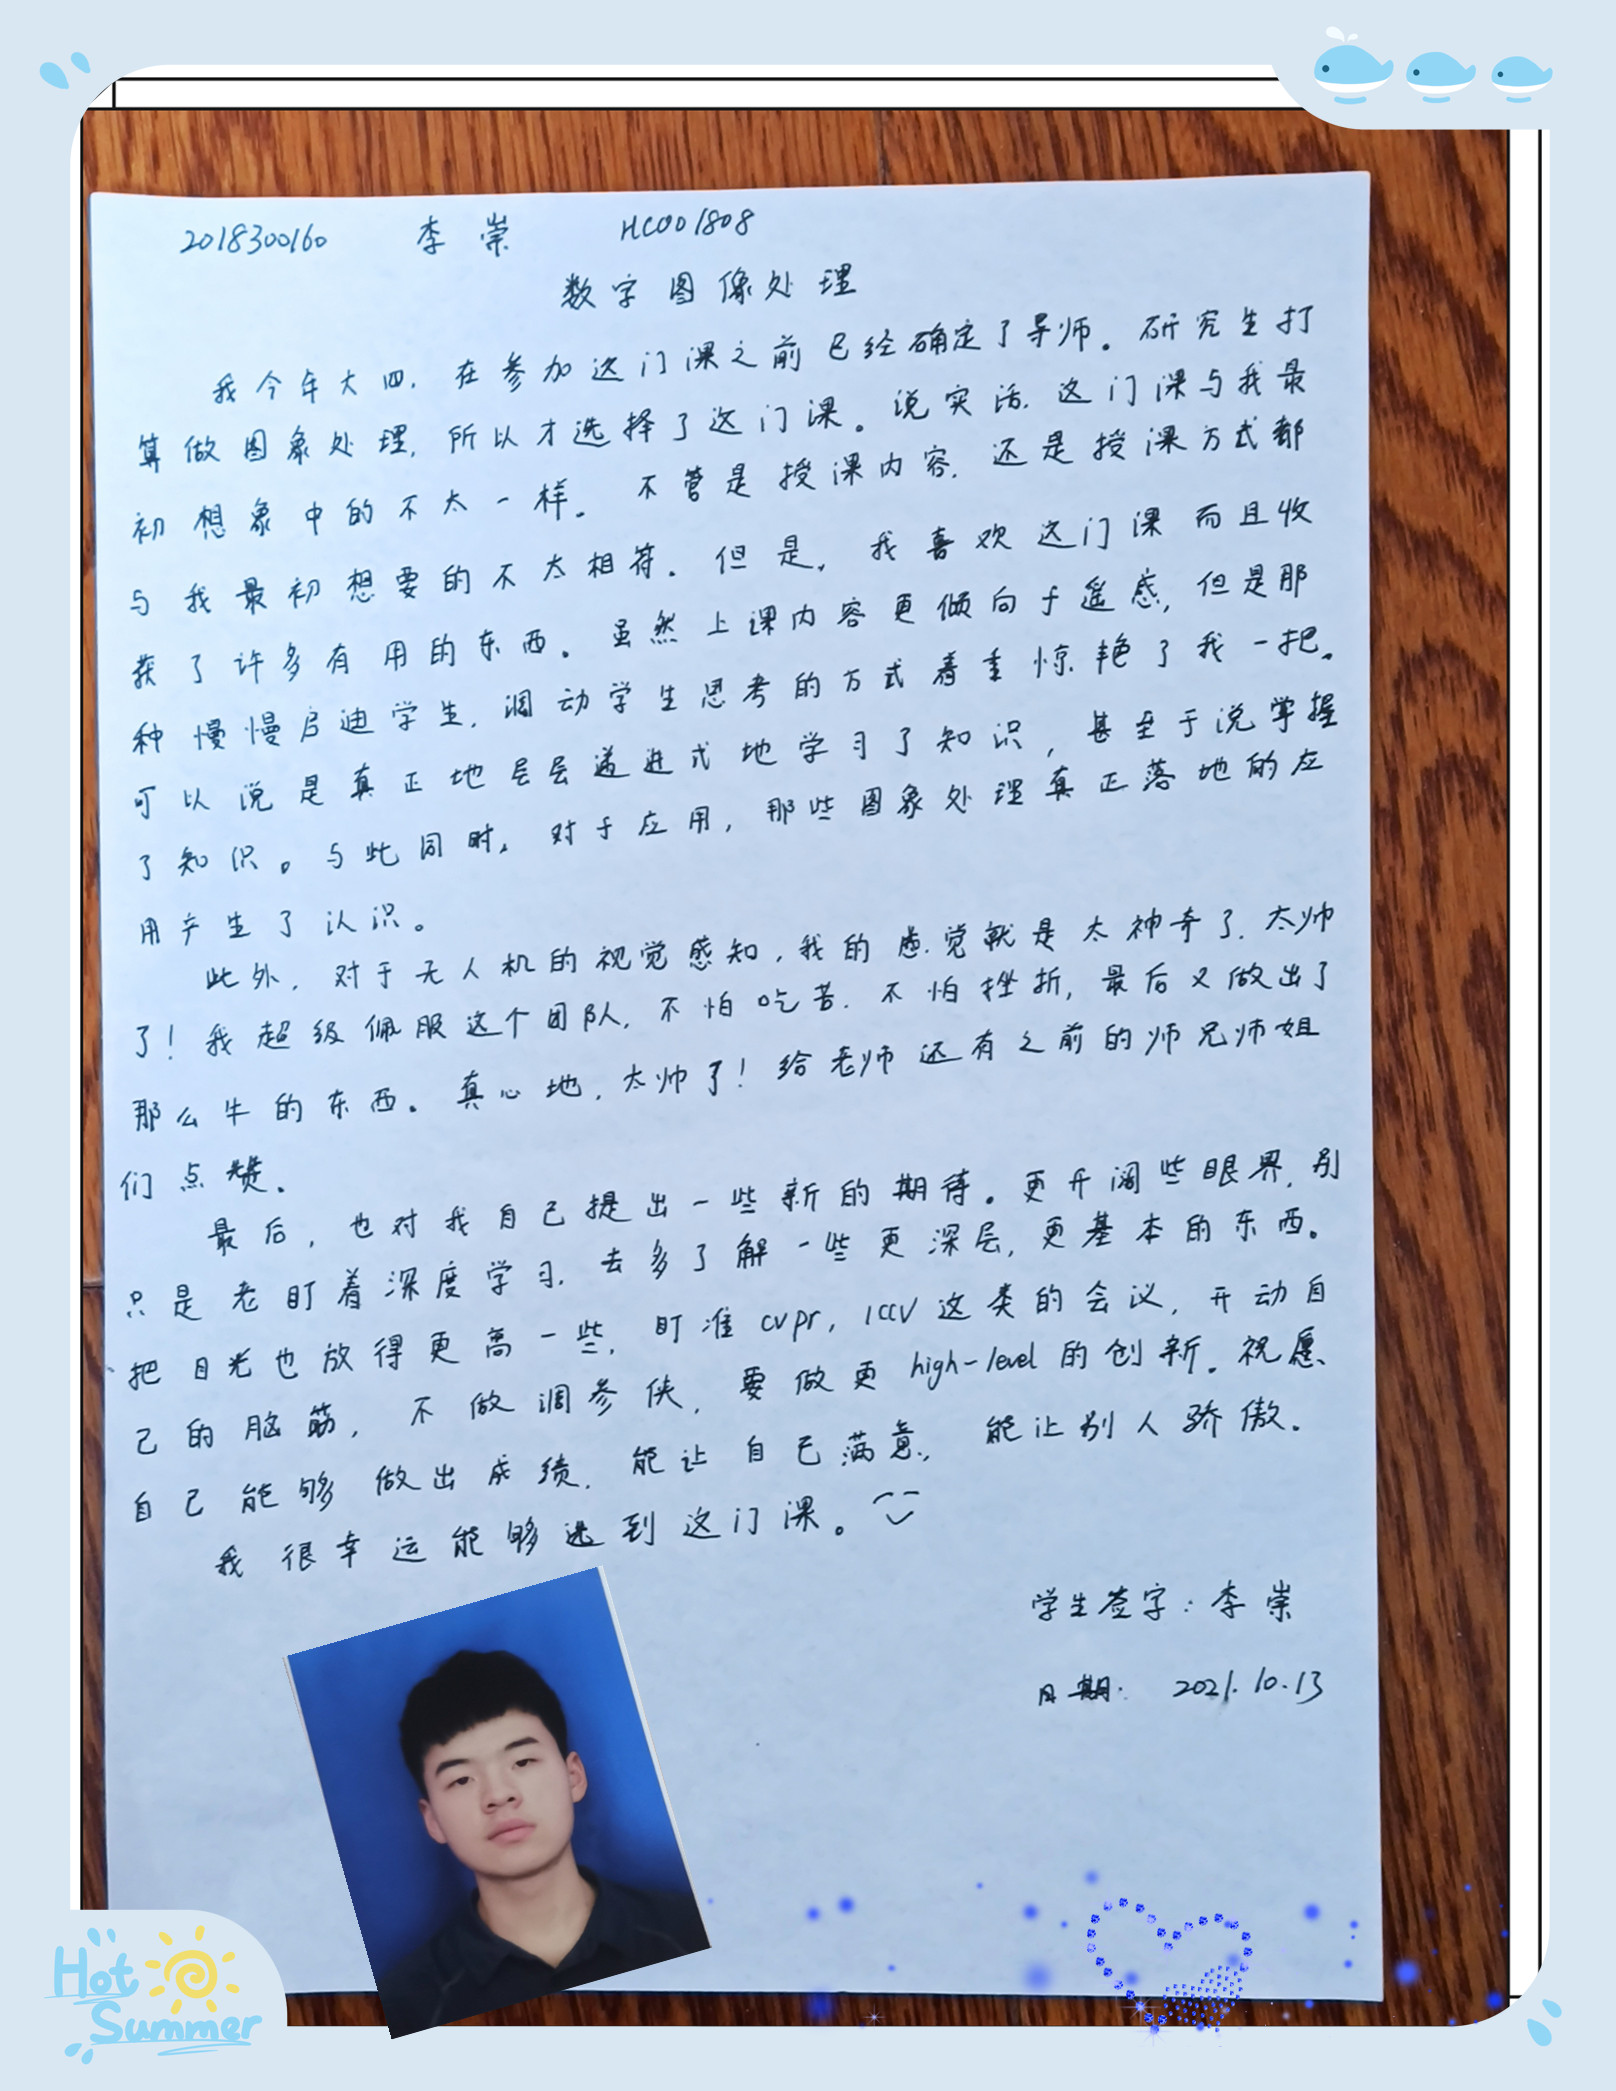 2018300160 李崇 HC001808
数字图像处理
我今年大四，在参加这门课之前已经确定了导师。研究生打
算做图象处理，所以才选择了这门课。说实话，这门课与我最
初想象中的不太一样。不管是授课内容，还是授课方式都
与我最初想要的不太相符。但是，我喜欢这门课而且收
获了许多有用的东西。虽然上课内容更倾向于遥感，但是那
种慢慢启迪学生，调动学生思考的方式着重惊艳了我一把。
可以说是真正地层层递进式地学习了知识，甚至于说掌握
了知识。与此同时，对于应用，那些图象处理真正落地的应
用产生了认识。
此外，对于无人机的视觉感知，我的感觉就是太神奇了，太帅
了！我超级佩服这个团队，不怕吃苦，不怕挫折，最后又做出了
那么牛的东西。真心地，太帅了！给老师还有之前的师兄师姐
们点赞。
最后，也对我自己提出一些新的期待。更开阔些眼界，别
只是老盯着深度学习，去多了解一些更深层，更基本的东西。
把目光也放得更高一些，盯准cvpr，ICCV这类的会议，开动自
己的脑筋，不做调参侠，要做更high-level的创新。祝愿
自己能够做出成绩，能让自己满意，能让别人骄傲。
我很幸运能够选到这门课。
学生签字：李崇
日期：2021.10.13
Hot
Summer